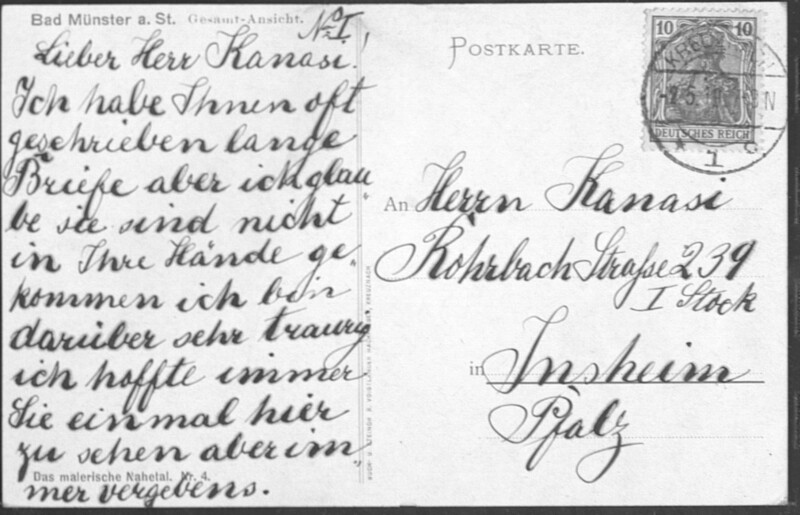 Bad Münster a. St. Gesamt-Ansicht.
No I,
Lieber Herr Kanasi.
Ich habe Ihnen oft
geschrieben lange
Briefe aber ich glau„
be sie sind nicht
in Ihre Hände ge„
kommen ich bin
darüber sehr traurig
ich hoffte immer
Sie einmal hier
zu sehen aber im„
Das malerische Nahetal. Nr. 4.
mer vergebens.
POSTKARTE.
10 10
DEUTSCHES REICH
An Herrn Kanasi
Rohrbach Straße 239
I Stock
in Insheim
Pfalz